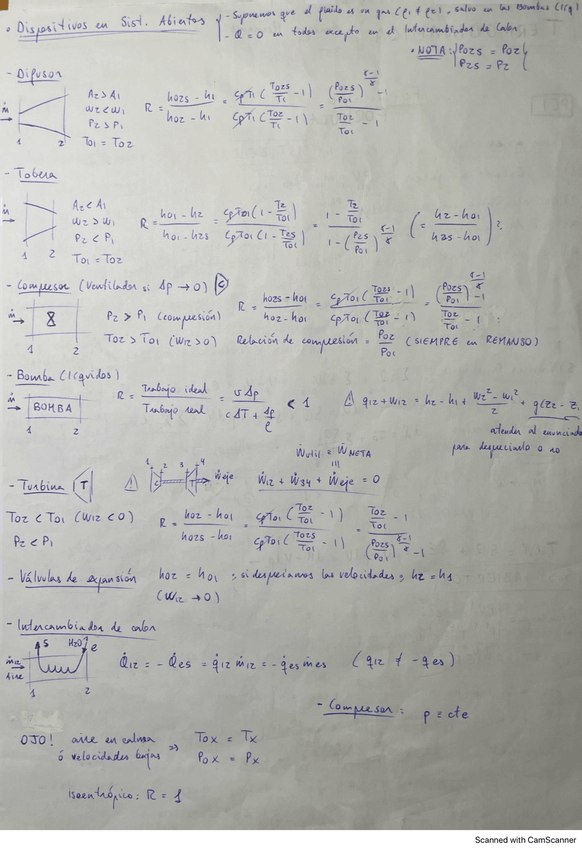 • Dispositivos en Sist. Abiertos
- Suponemos que el fluido es un gas (ρ1 ≠ ρ2), salvo en las Bombas (líq)
- Q = 0 en todos excepto en el Intercambiador de Calor
• NOTA: P02s = P02
P2s = P2
- Difusor
ṁ
1 2
A2 > A1
w2 < w1
P2 > P1
T01 = T02
R = (h02s - h1)/(h02 - h1) = (cpT1(T02s/T1 - 1))/(cpT1(T02/T1 - 1)) = ((P02s/P01)^((γ-1)/γ) - 1)/(T02/T01 - 1)
- Tobera
ṁ
1 2
A2 < A1
w2 > w1
P2 < P1
T01 = T02
R = (h01 - h2)/(h01 - h2s) = (cpT01(1 - T2/T01))/(cpT01(1 - T2s/T01)) = (1 - T2/T01)/(1 - (P2s/P01)^((γ-1)/γ)) (= (h2 - h01)/(h2s - h01))?
- Compresor (Ventilador si Δp → 0) C
ṁ
1 2
P2 > P1 (compresión)
T02 > T01 (W12 > 0)
R = (h02s - h01)/(h02 - h01) = (cpT01(T02s/T01 - 1))/(cpT01(T02/T01 - 1)) = ((P02s/P01)^((γ-1)/γ) - 1)/(T02/T01 - 1)
Relación de compresión = P02/P01 (SIEMPRE en REMANSO)
- Bomba (líquidos)
ṁ BOMBA
1 2
R = Trabajo ideal/Trabajo real = vΔp/(cΔT + Δp/ρ) < 1
⚠ q12 + w12 = h2 - h1 + (w2² - w1²)/2 + g(z2 - z1
atender al enunciado
para despreciarlo o no
Ẇutil = ẆNETA
- Turbina T ⚠ 1 C 2 3 T 4 Ẇeje Ẇ12 + Ẇ34 + Ẇeje = 0
T02 < T01 (W12 < 0)
P2 < P1
R = (h02 - h01)/(h02s - h01) = (cpT01(T02/T01 - 1))/(cpT01(T02s/T01 - 1)) = (T02/T01 - 1)/((P02s/P01)^((γ-1)/γ) - 1)
- Válvulas de expansión h02 = h01 ; si despreciamos las velocidades ; h2 = h1
(W12 → 0)
- Intercambiador de calor
s H2O e
ṁ12
Aire
1 2
Q̇12 = - Q̇es = q12 ṁ12 = - qes ṁes (q12 ≠ - qes)
- Compresor : p ≡ cte
OJO! aire en calma
ó velocidades bajas ⇒ T0x = Tx
P0x = Px
Isoentrópico: R = 1
Scanned with CamScanner